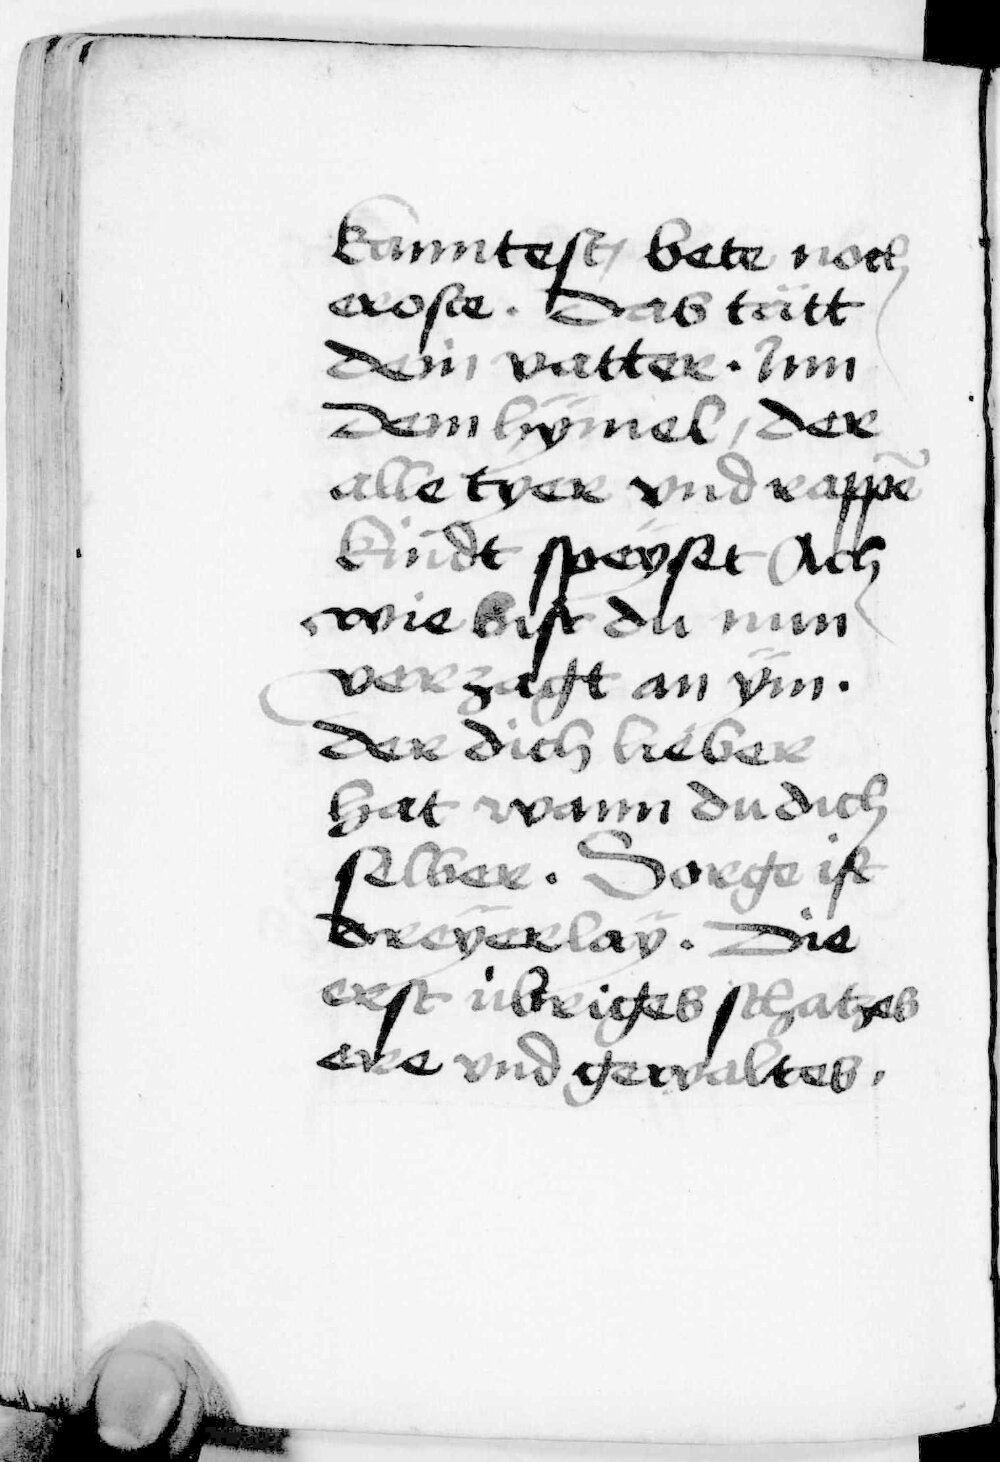 kanntest / bete noch
eroste . Das tätt
dein vatter . Inn
dem hÿmel / der
alle tyer vnd rappē
kindt speÿset Ach
wie bist du nun
verzagt an ÿm .
der dich lieber
hat wann du dich
selber . Sorge ist
dreÿerlaÿ . Die
erst übriges schatzes
ere vnd gewaltes .